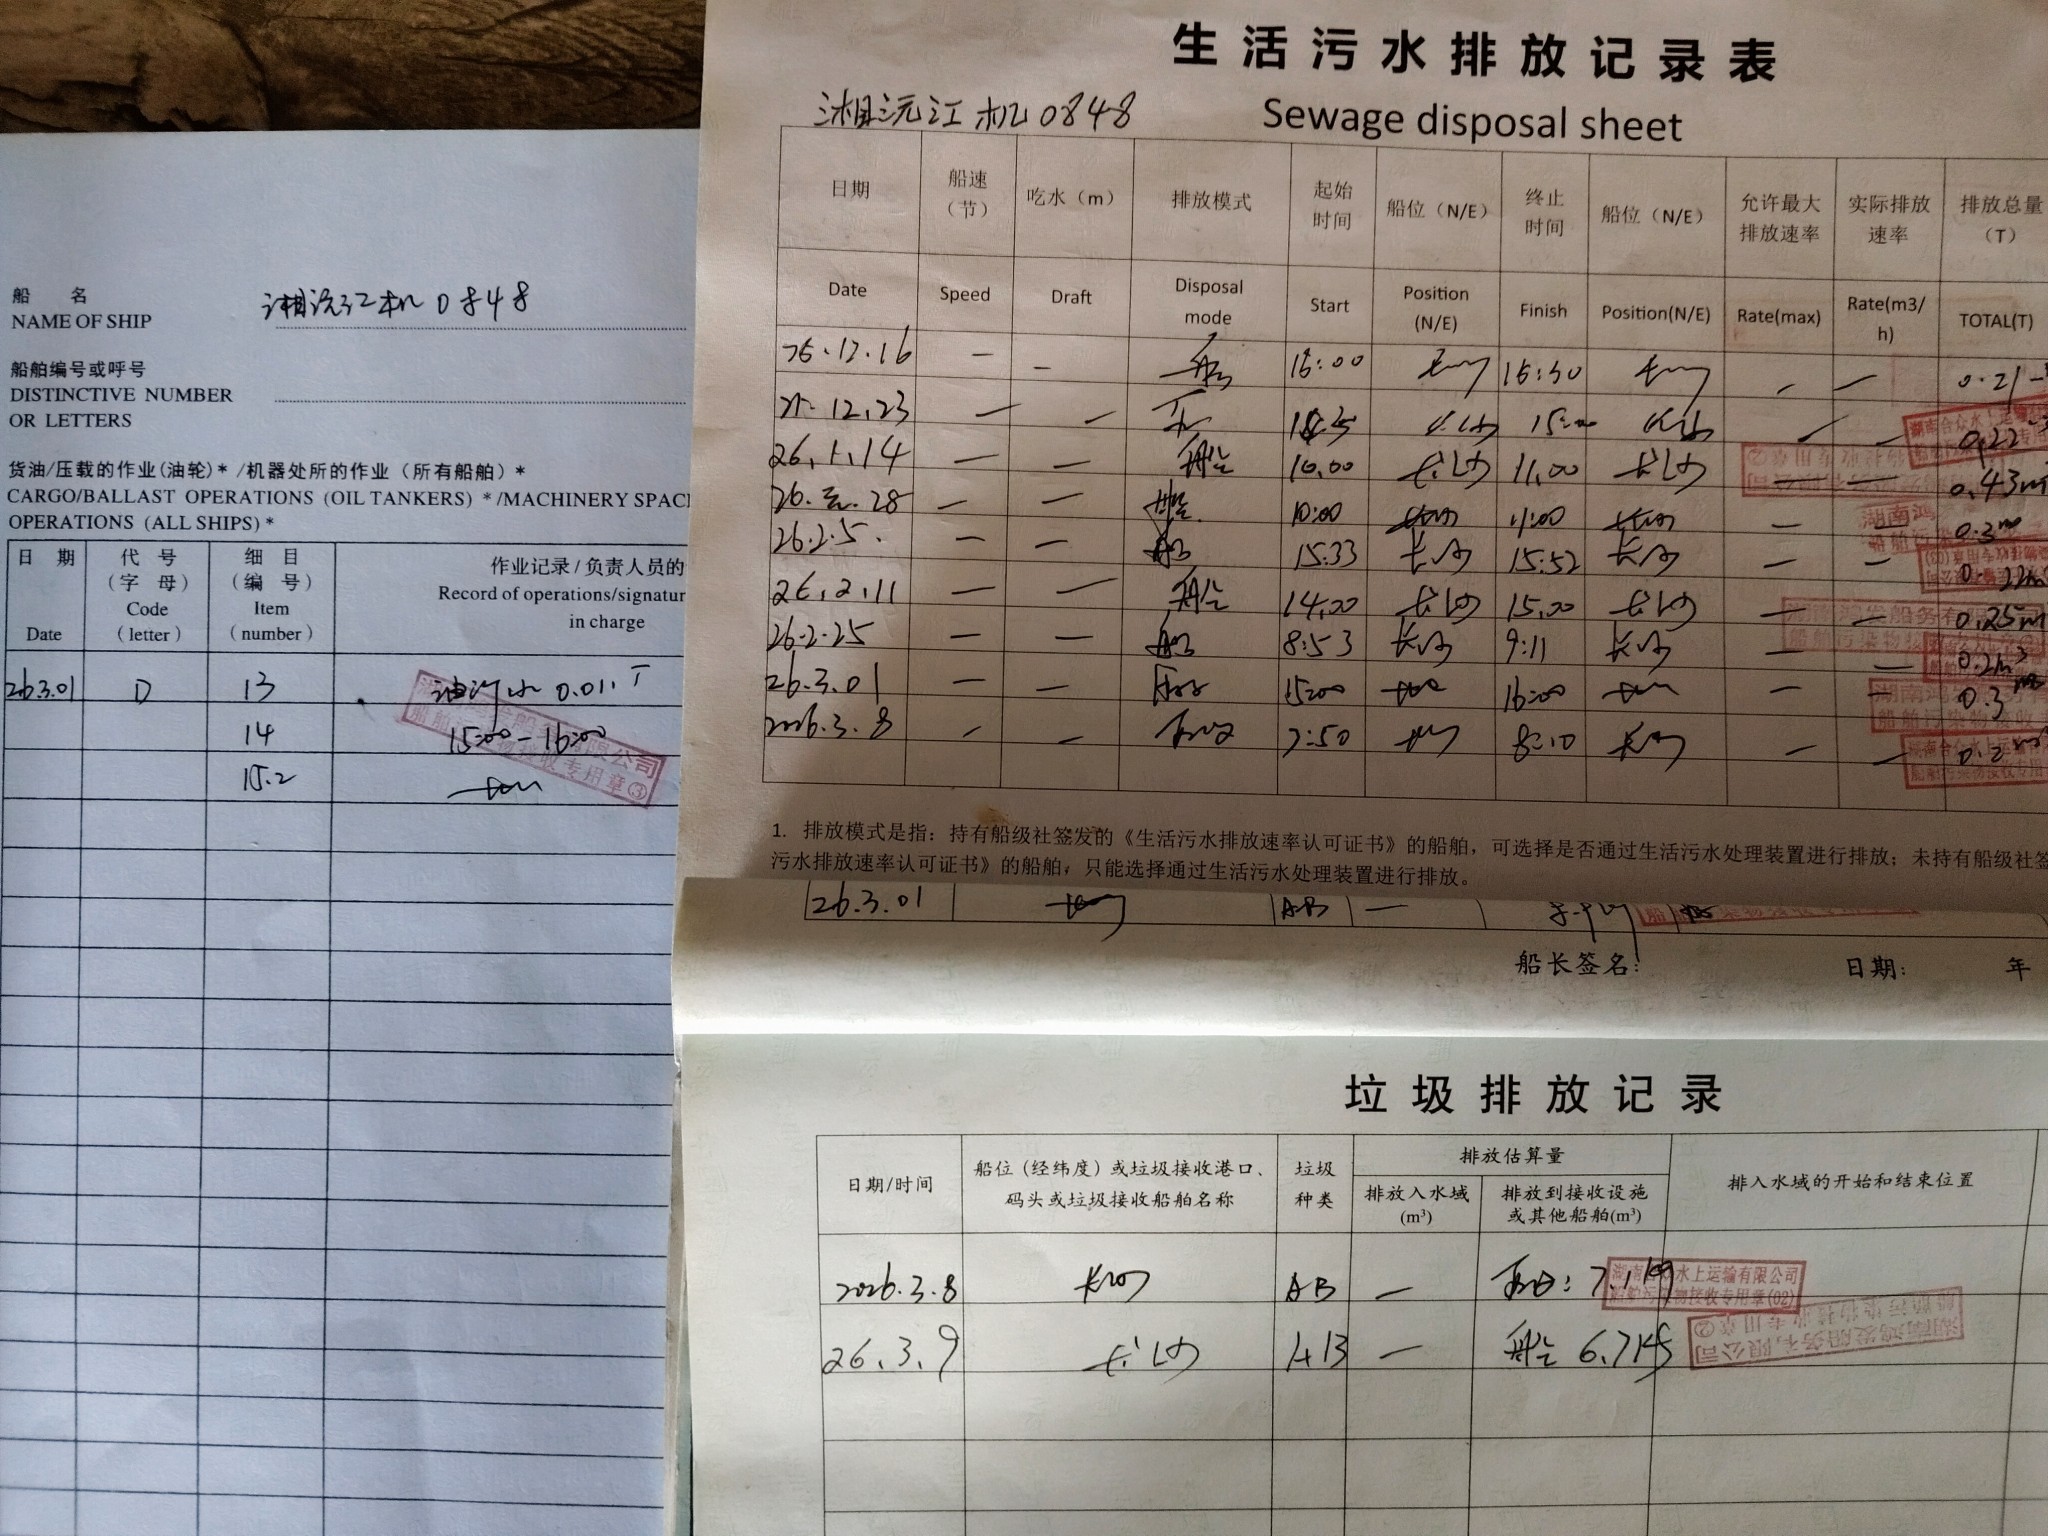 船 名
NAME OF SHIP
湘沅江机0848
船舶编号或呼号
DISTINCTIVE NUMBER
OR LETTERS
货油/压载的作业(油轮)* /机器处所的作业（所有船舶）*
CARGO/BALLAST OPERATIONS (OIL TANKERS) * /MACHINERY SPAC
OPERATIONS (ALL SHIPS) *
日 期 代 号 细 目 作业记录 / 负责人员的
（字 母） （编 号） Record of operations/signatur
Code Item in charge
Date （letter） （number）
26.3.01 D 13 油污水 0.01T
14 15:00-16:00
15.2 长沙
船舶污染物接收专用章③
生活污水排放记录表
湘沅江机0848
Sewage disposal sheet
日期 船速（节） 吃水（m） 排放模式 起始时间 船位（N/E） 终止时间 船位（N/E） 允许最大排放速率 实际排放速率 排放总量（T）
Date Speed Draft Disposal mode Start Position (N/E) Finish Position(N/E) Rate(max) Rate(m3/h) TOTAL(T)
25.12.16 — — 船 16:00 长沙 16:30 长沙 — — 0.21
25.12.23 — — 长沙 15:00 长沙 — 0.22
26.1.14 — — 船 10.00 长沙 11.00 长沙 — — 0.43m
28 — — 10:00 长沙 11:00 长沙 — — 0.3m
26.2.5. — — 船 15:33 长沙 15:52 长沙 — — 0.22m
26.2.11 — — 船 14.00 长沙 15.00 长沙 — — 0.25m
26.2.25 — — 船 8:53 长沙 9:11 长沙 — — 0.2m³
26.3.01 — — 15:00 长沙 16:00 长沙 — — 0.3
2026.3.8 — — 7:50 长沙 8:10 长沙 — — 0.2m³
1. 排放模式是指：持有船级社签发的《生活污水排放速率认可证书》的船舶，可选择是否通过生活污水处理装置进行排放；未持有船级社签
污水排放速率认可证书》的船舶，只能选择通过生活污水处理装置进行排放。
26.3.01 长沙 AB —
船长签名： 日期： 年
垃圾排放记录
日期/时间 船位（经纬度）或垃圾接收港口、码头或垃圾接收船舶名称 垃圾种类 排放估算量 排入水域的开始和结束位置
排放入水域(m³) 排放到接收设施或其他船舶(m³)
2026.3.8 长沙 AB — 7.1kg
湖南合众水上运输有限公司
船舶污染物接收专用章(02)
26.3.9 长沙 AB — 船 6.7kg
湖南鸿发船务有限公司
船舶污染物接收专用章②